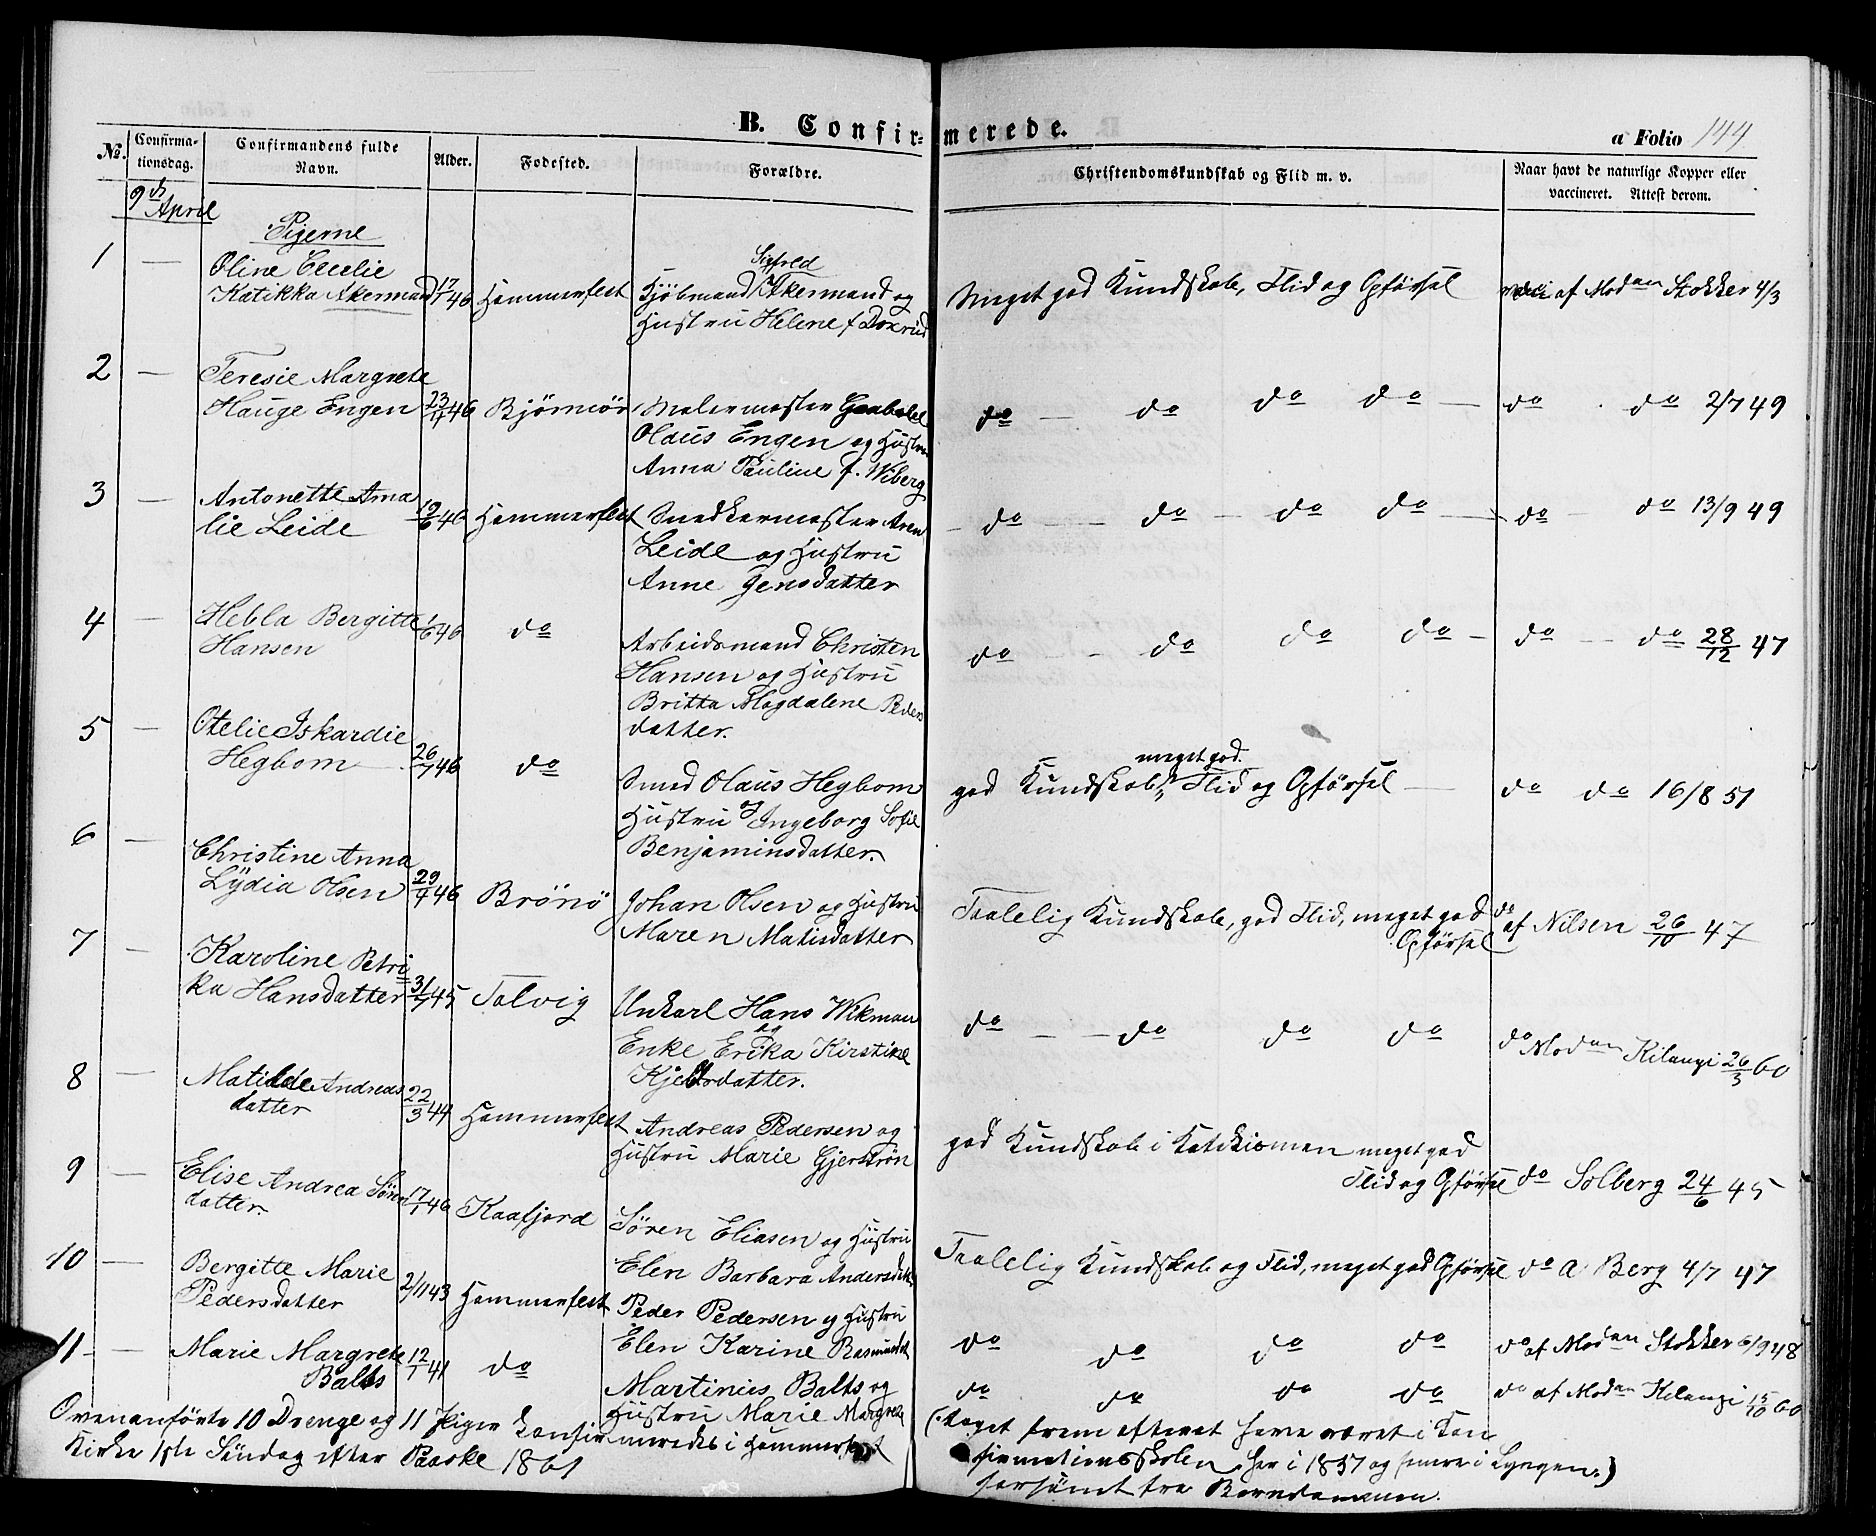 B. Confirmerede.
a Folio 144
No. Confirmationsdag. Confirmandens fulde Navn. Alder. Fodested. Forældre. Christendomskundskab og Flid m. v. Naar havt de naturlige Kopper eller vaccineret. Attest derom.
9de April
Pigerne
1 — Oline Cecilie
Katikka Akermand 17/1 46 Hammerfest Kjøbmand Sigfred Akermand og
Hustru Helene f. Meget god Kundskab, Flid og Opførsel af Madam Stokker 4/3
2 — Teresie Margrete
Hauge Engen 23/11 46 Bjørnør Malermester
Olaus Engen og Hustru
Anna Pauline f. Wiberg do — do do do — do do 2/7 49
3 — Antonette Ama
lie Leide 19/6 46 Hammerfest Snedkermester Aren
Leide og Hustru
Anne Jensdatter do — do — do do — do — do 13/9 49
4 — Hebla Bergitte
Hansen 1/6 46 do Arbeidsmand Christen
Hansen og Hustru
Britta Magdalene Peders
datter. do — do do do — do — do 28/12 47
5 — Otelie Iskardie
Hegbom 26/7 46 do Smed Olaus Hegbom
og Hustru Ingeborg Sofie
Benjaminsdatter. god Kundskab, meget god Flid og Opførsel — do do 16/8 51
6 — Christine Anna
Lÿdia Olsen 29/4 46 Brönö Johan Olsen og Hustru
Maren Matisdatter Taalelig Kundskab, god Flid, meget god
Opførsel do af Nilsen 26/10 47
7 — Karoline Petri
ka Hansdatter 31/7 45 Talvig Unkarl Hans Wikman
og Enke Erika Kirstine
datter. do — do do do do Madam Kilangi 26/3 60
8 — Matilde Andreas
datter 22/3 44 Hammerfest Andreas Pedersen og
Hustru Marie Gjerströn god Kundskab i Katekismen meget god
Flid og Opførsel do Solberg 24/6 45
9 — Elise Andrea Søren
datter. 17/1 46 Kaafjord Søren Eliasen og Hustru
Elen Barbara Andersdatter Taalelig Kundskab og Flid, meget god Opførsel do A Berg 4/7 47
10 — Bergitte Marie
Pedersdatter 2/11 43 Hammerfest Peder Pedersen og Hustru
Elen Karine Rasmusdat do do do do do af Madam Stokker 6/9 48
11 — Marie Margrete
Balts 12/1 41 do Martinius Balts og
Hustru Marie Margrete do do do do do af Madam Kilangi 15/10 60
Ovenanførte 10 Drenge og 11 Piger confirmeredes i Hammerfest
Kirke 1ste Søndag efter Paaske 1861
(taget frem efterat have været i Con
firmationsskolen her i 1857 og senere i Lyngen.)
forsømt fra Barndommen.